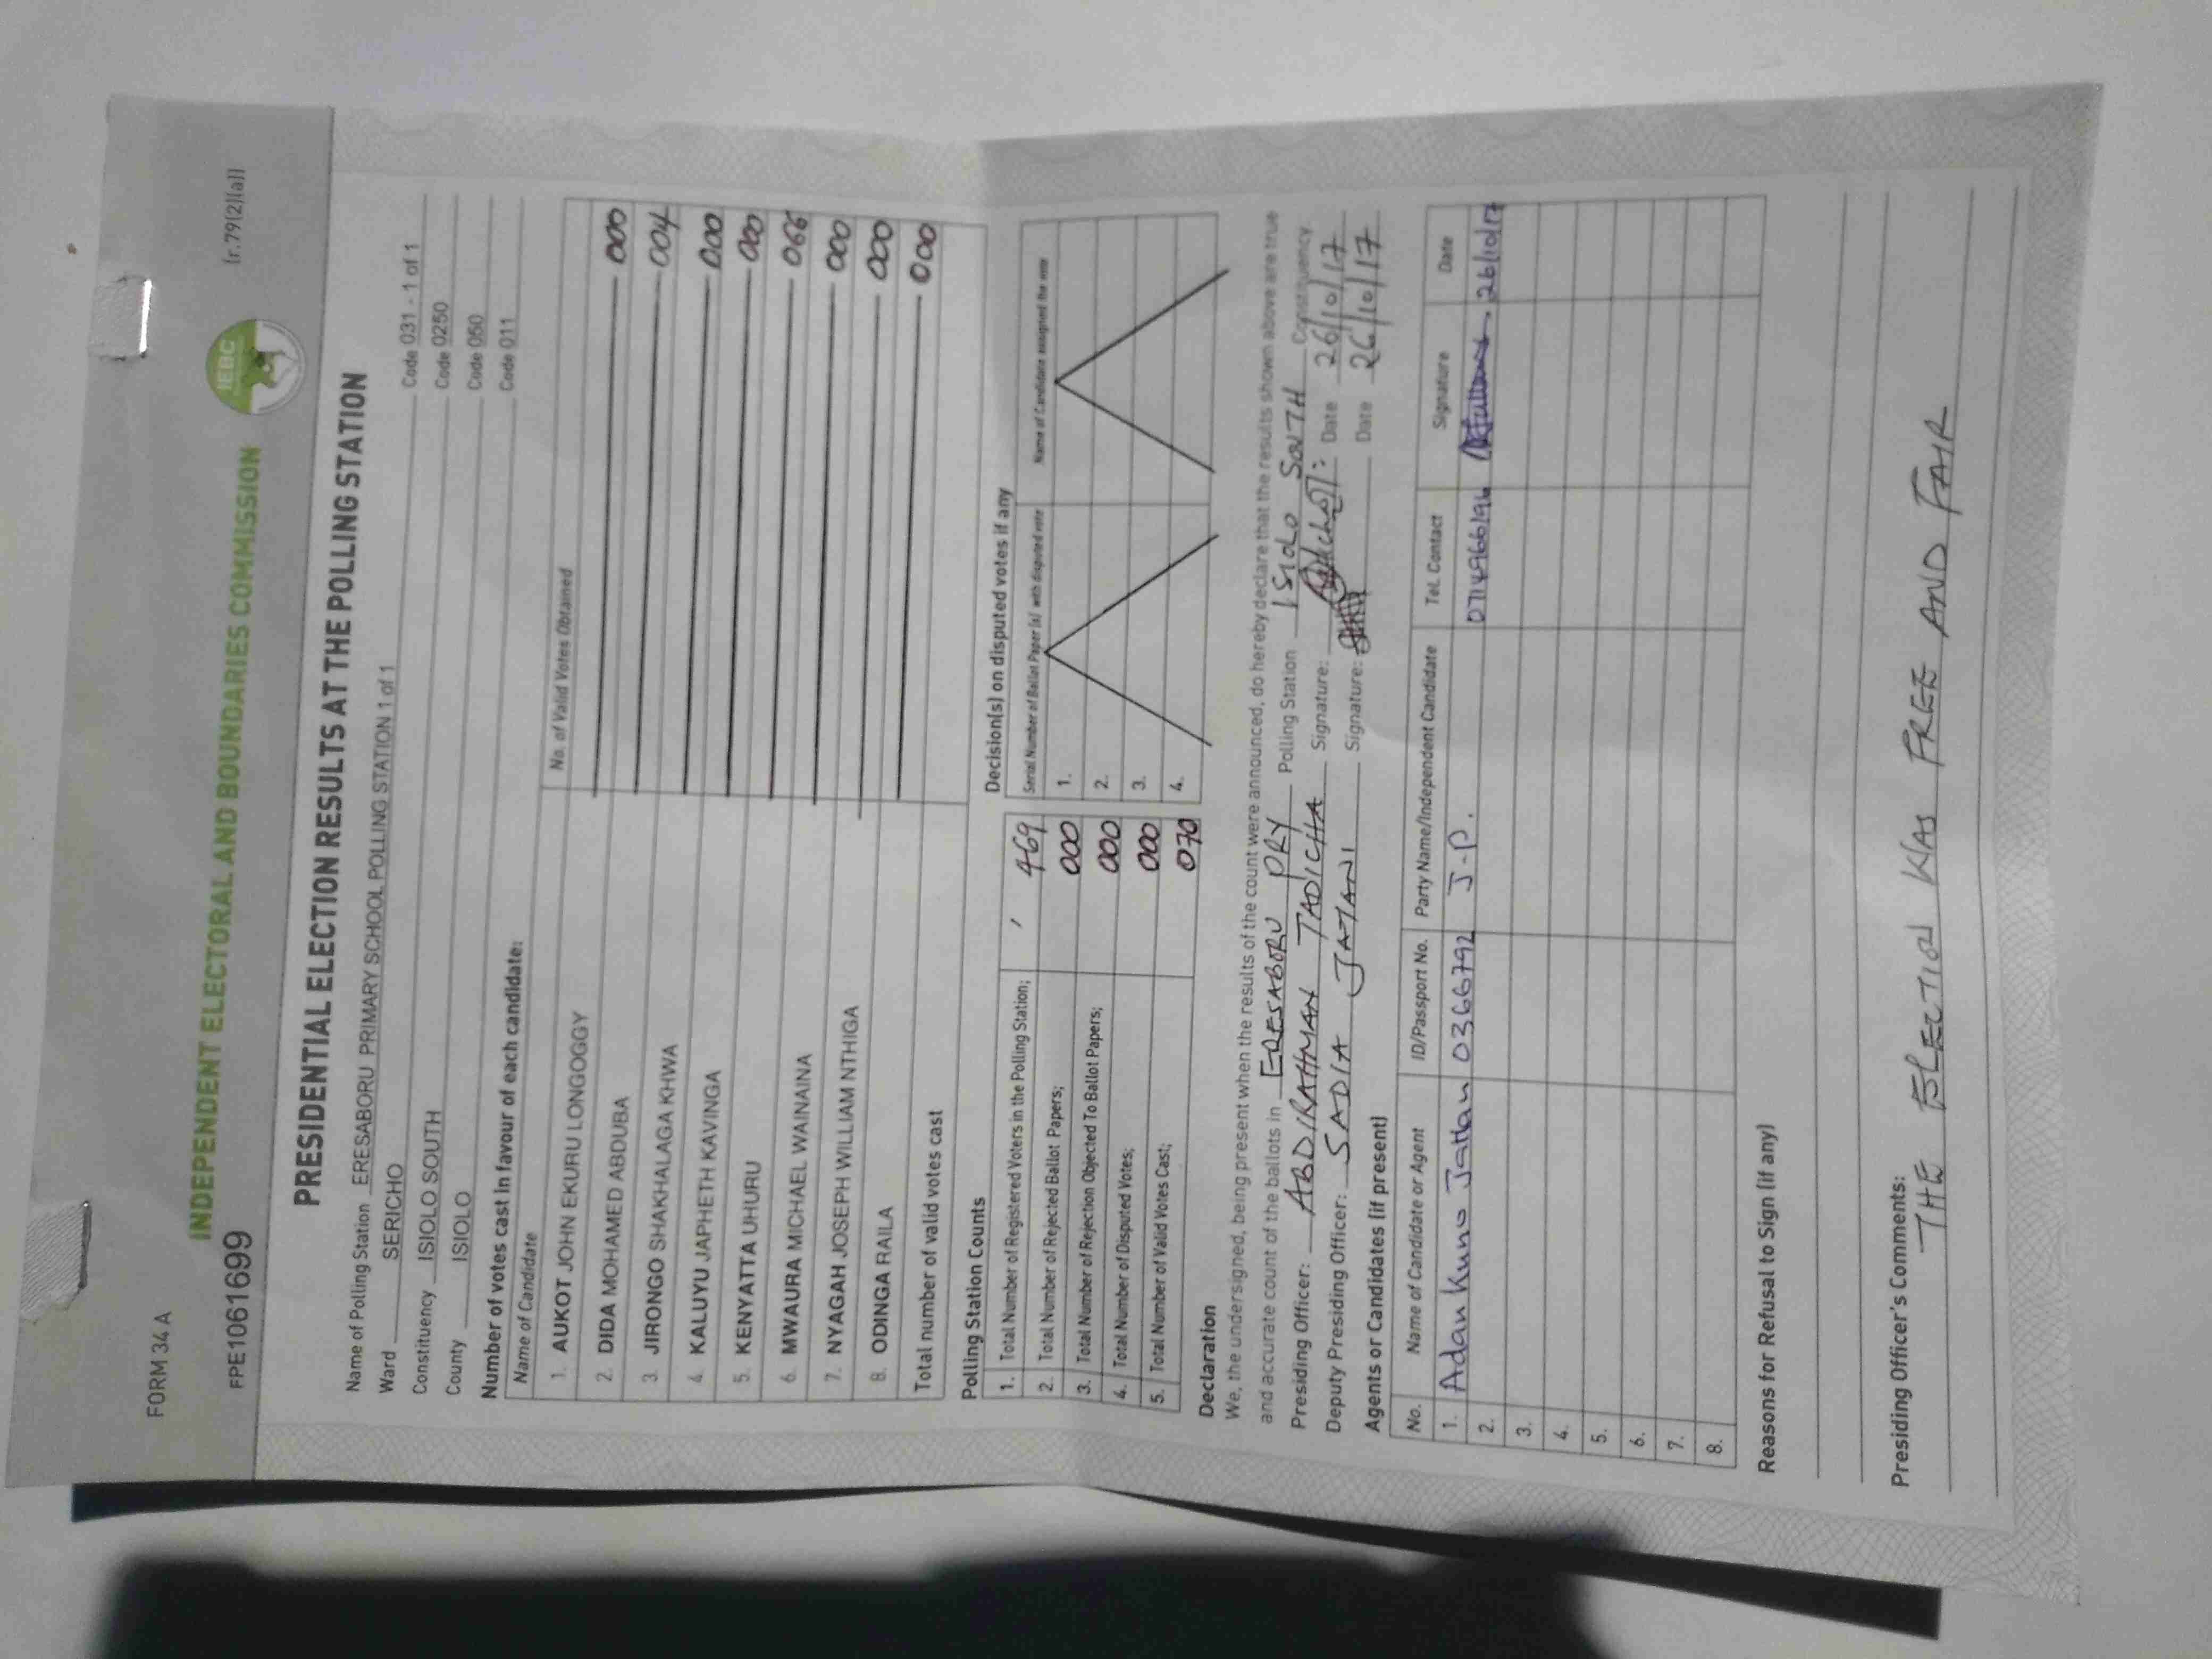 FORM 34 A
INDEPENDENT ELECTORAL AND BOUNDARIES COMMISSION
IEBC
(r.79(2)(a))
FPE1061699
PRESIDENTIAL ELECTION RESULTS AT THE POLLING STATION
Name of Polling Station ERESABORU PRIMARY SCHOOL POLLING STATION 1 of 1 Code 031 - 1 of 1
Ward SERICHO Code 0250
Constituency ISIOLO SOUTH Code 050
County ISIOLO Code 011
Number of votes cast in favour of each candidate:
Name of Candidate No. of Valid Votes Obtained
1. AUKOT JOHN EKURU LONGOGGY 000
2. DIDA MOHAMED ABDUBA 004
3. JIRONGO SHAKHALAGA KHWA 000
4. KALUYU JAPHETH KAVINGA 000
5. KENYATTA UHURU 066
6. MWAURA MICHAEL WAINAINA 000
7. NYAGAH JOSEPH WILLIAM NTHIGA 000
8. ODINGA RAILA 000
Total number of valid votes cast
Polling Station Counts
1. Total Number of Registered Voters in the Polling Station; 469
2. Total Number of Rejected Ballot Papers; 000
3. Total Number of Rejection Objected To Ballot Papers; 000
4. Total Number of Disputed Votes; 000
5. Total Number of Valid Votes Cast; 070
Decision(s) on disputed votes if any
Serial Number of Ballot Paper (s) with disputed vote Name of Candidate assigned the vote
1.
2.
3.
4.
Declaration
We, the undersigned, being present when the results of the count were announced, do hereby declare that the results shown above are true
and accurate count of the ballots in ERESABORU PRY Polling Station ISIOLO SOUTH Constituency.
Presiding Officer: ABDIRAHMAN TADICHA Signature: Date 26/10/17
Deputy Presiding Officer: SADIA JATANI Signature: Date 26/10/17
Agents or Candidates (if present)
No. Name of Candidate or Agent ID/Passport No. Party Name/Independent Candidate Tel. Contact Signature Date
1. Adan Kuno Jattan 0366792 J-P. 0714966196 26/10/17
2.
3.
4.
5.
6.
7.
8.
Reasons for Refusal to Sign (if any)
Presiding Officer's Comments:
THE ELECTION WAS FREE AND FAIR